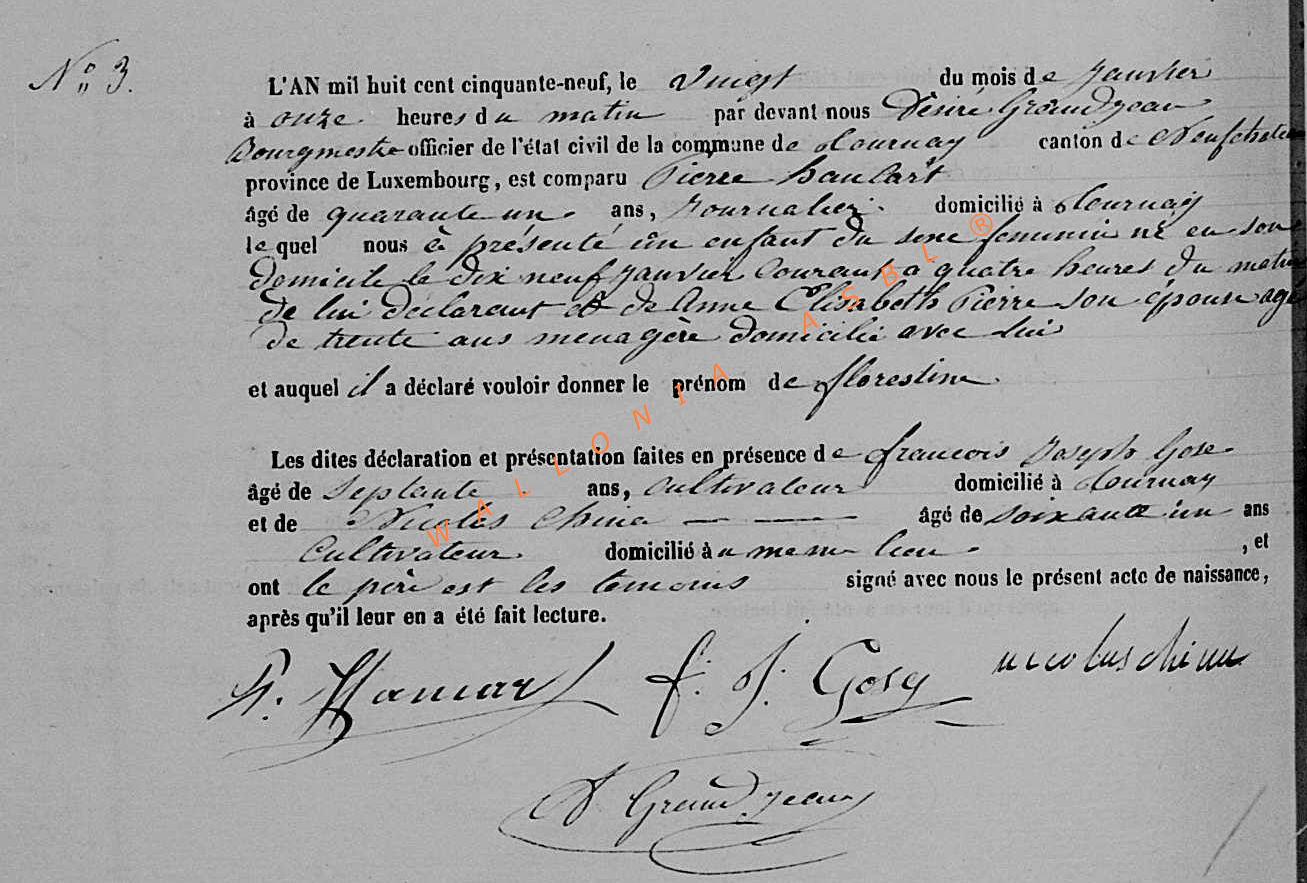 N° 3.
L'AN mil huit cent cinquante-neuf, le vingt du mois de Janvier
à onze heures du matin par devant nous Désiré Grandjean
Bourgmestre officier de l'état civil de la commune de Tournay canton de Neufchateau
province de Luxembourg, est comparu Pierre
âgé de quarante un ans, Journalier domicilié à Tournay
lequel nous à présenté un enfant du sexe feminin né en son
domicile le dix neuf Janvier Courant a quatre heures du matin
de lui déclarant et de Anne Elisabeth Pierre son épouse agé
de trente ans menagère domicilié avec lui
et auquel il a déclaré vouloir donner le prénom de florestine
Les dites déclaration et présentation faites en présence de francois Joseph Gose
âgé de Septante ans, cultivateur domicilié à Tournay
et de Nicolas Chine âgé de soixante un ans
Cultivateur domicilié au meme lieu , et
ont le père est les temoins signé avec nous le présent acte de naissance,
après qu'il leur en a été fait lecture.
F. J. Gosy nicolas chine
D Grandjean
WALLONIA ASBL ®